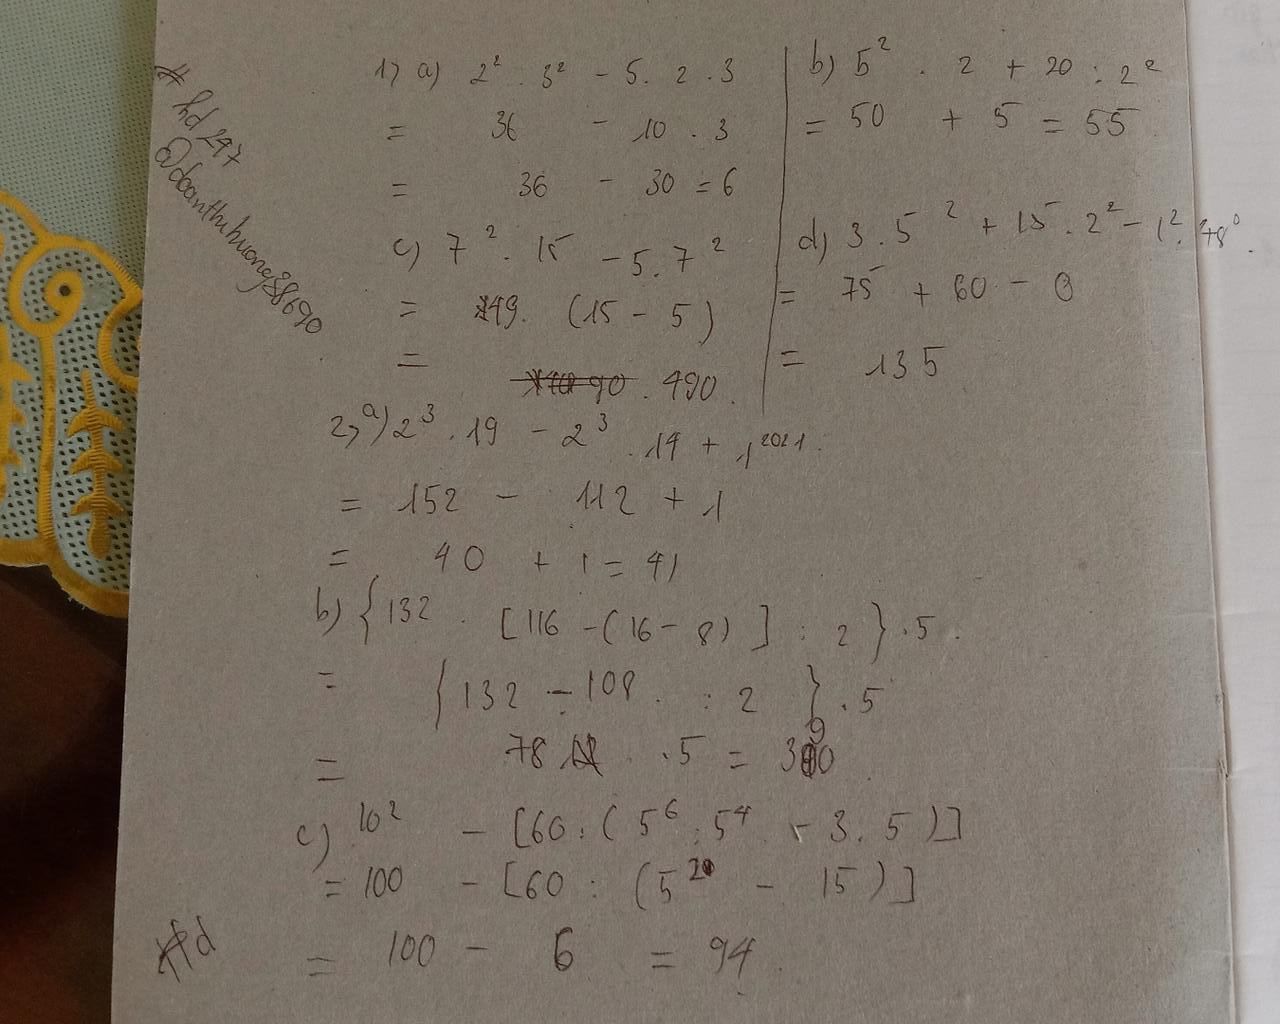 * hd 247
@doanthihuong88690
1, a) 2² . 3² - 5. 2 . 3
= 36 - 10 . 3
= 36 - 30 = 6
b) 5² . 2 + 20 : 2²
= 50 + 5 = 55
c) 7² . 15 - 5. 7²
= 49. (15 - 5)
= 490.
d) 3 . 5² + 15 . 2² - 1².
= 75 + 60 - 0
= 135
2, a) 2³ . 19 - 2³ . 14 + 1²⁰²¹.
= 152 - 112 + 1
= 40 + 1 = 41
b) { 132 . [116 - (16 - 8) ] : 2 } . 5.
= { 132 - 108 : 2 } . 5
= 78 . 5 = 390
c) 10² - [60 : ( 5⁶ : 5⁴ - 3. 5 )]
= 100 - [60 : (5² - 15 )]
= 100 - 6 = 94